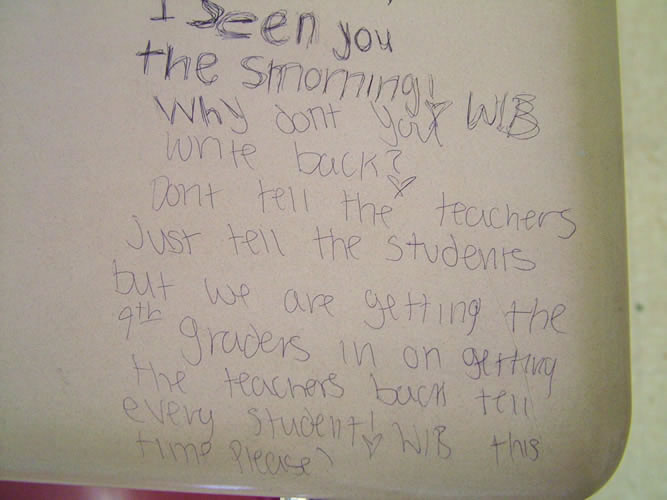 I seen you
the smorning!
Why dont you W/B
write back?
Dont tell the teachers
just tell the students
but we are getting the
9th graders in on getting
the teachers back tell
every student! W/B this
time please?